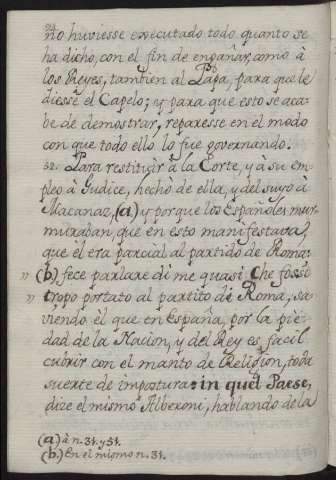 no huviesse executado todo quanto se
ha dicho, con el fin de engañar, como à
los Reyes, tambien al Papa, para que le
diesse el Capelo; y para que esto se aca-
be de demostrar, reparesse en el modo
con que todo ello lo fue governando.
32. Para restituir à la Corte, y à su em-
pleo à Judice, hechò de ella, y del suyo à
Macanaz, (a) y porque los Españoles mur-
muraban, que en esto manifestava,
que èl era parcial al partido de Roma:
» (b) fece parlare di me quasi Che fosse
» tropo portato al partito di Roma, sa-
viendo èl que en España, por la pie-
dad de la Nacion, y del Rey es facil
cubrir con el manto de Religion, toda
suerte de impostura: in quel Paese,
dize el mismo Alberoni, hablando de la
(a) à n. 31. y 51.
(b) En el mismo n. 31.